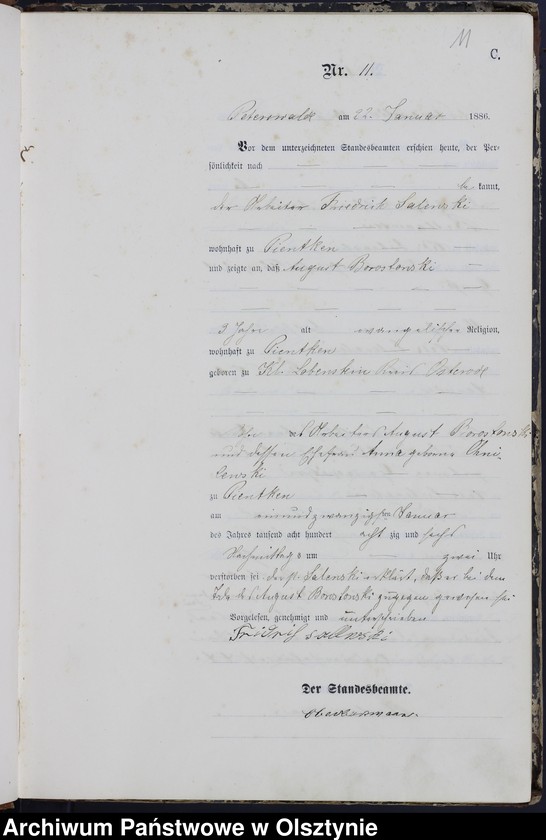 11
C.
Nr. 11.
Peterswalde am 22. Januar 1886.
Vor dem unterzeichneten Standesbeamten erschien heute, der Per-
sönlichkeit nach
be kannt,
der Arbeiter Friedrich Salewski
wohnhaft zu Pientken
und zeigte an, daß August Borostowski
3 Jahr alt evangelischer Religion,
wohnhaft zu Pientken
geboren zu Kl. Lobenstein Kreis Osterode
des Arbeiters August Borostowski
und dessen Ehefrau Anna geborne
lewski
zu Pientken
am einundzwanzigsten Januar
des Jahres tausend acht hundert acht zig und sechs
Nachmittag s um zwei Uhr
verstorben sei der p. Salewski erklärt, daß er bei dem
Tode des August Borostowski zugegen gewesen sei
Vorgelesen, genehmigt und unterschrieben
Fridrich Sallewski
Der Standesbeamte.
Archiwum Państwowe w Olsztynie